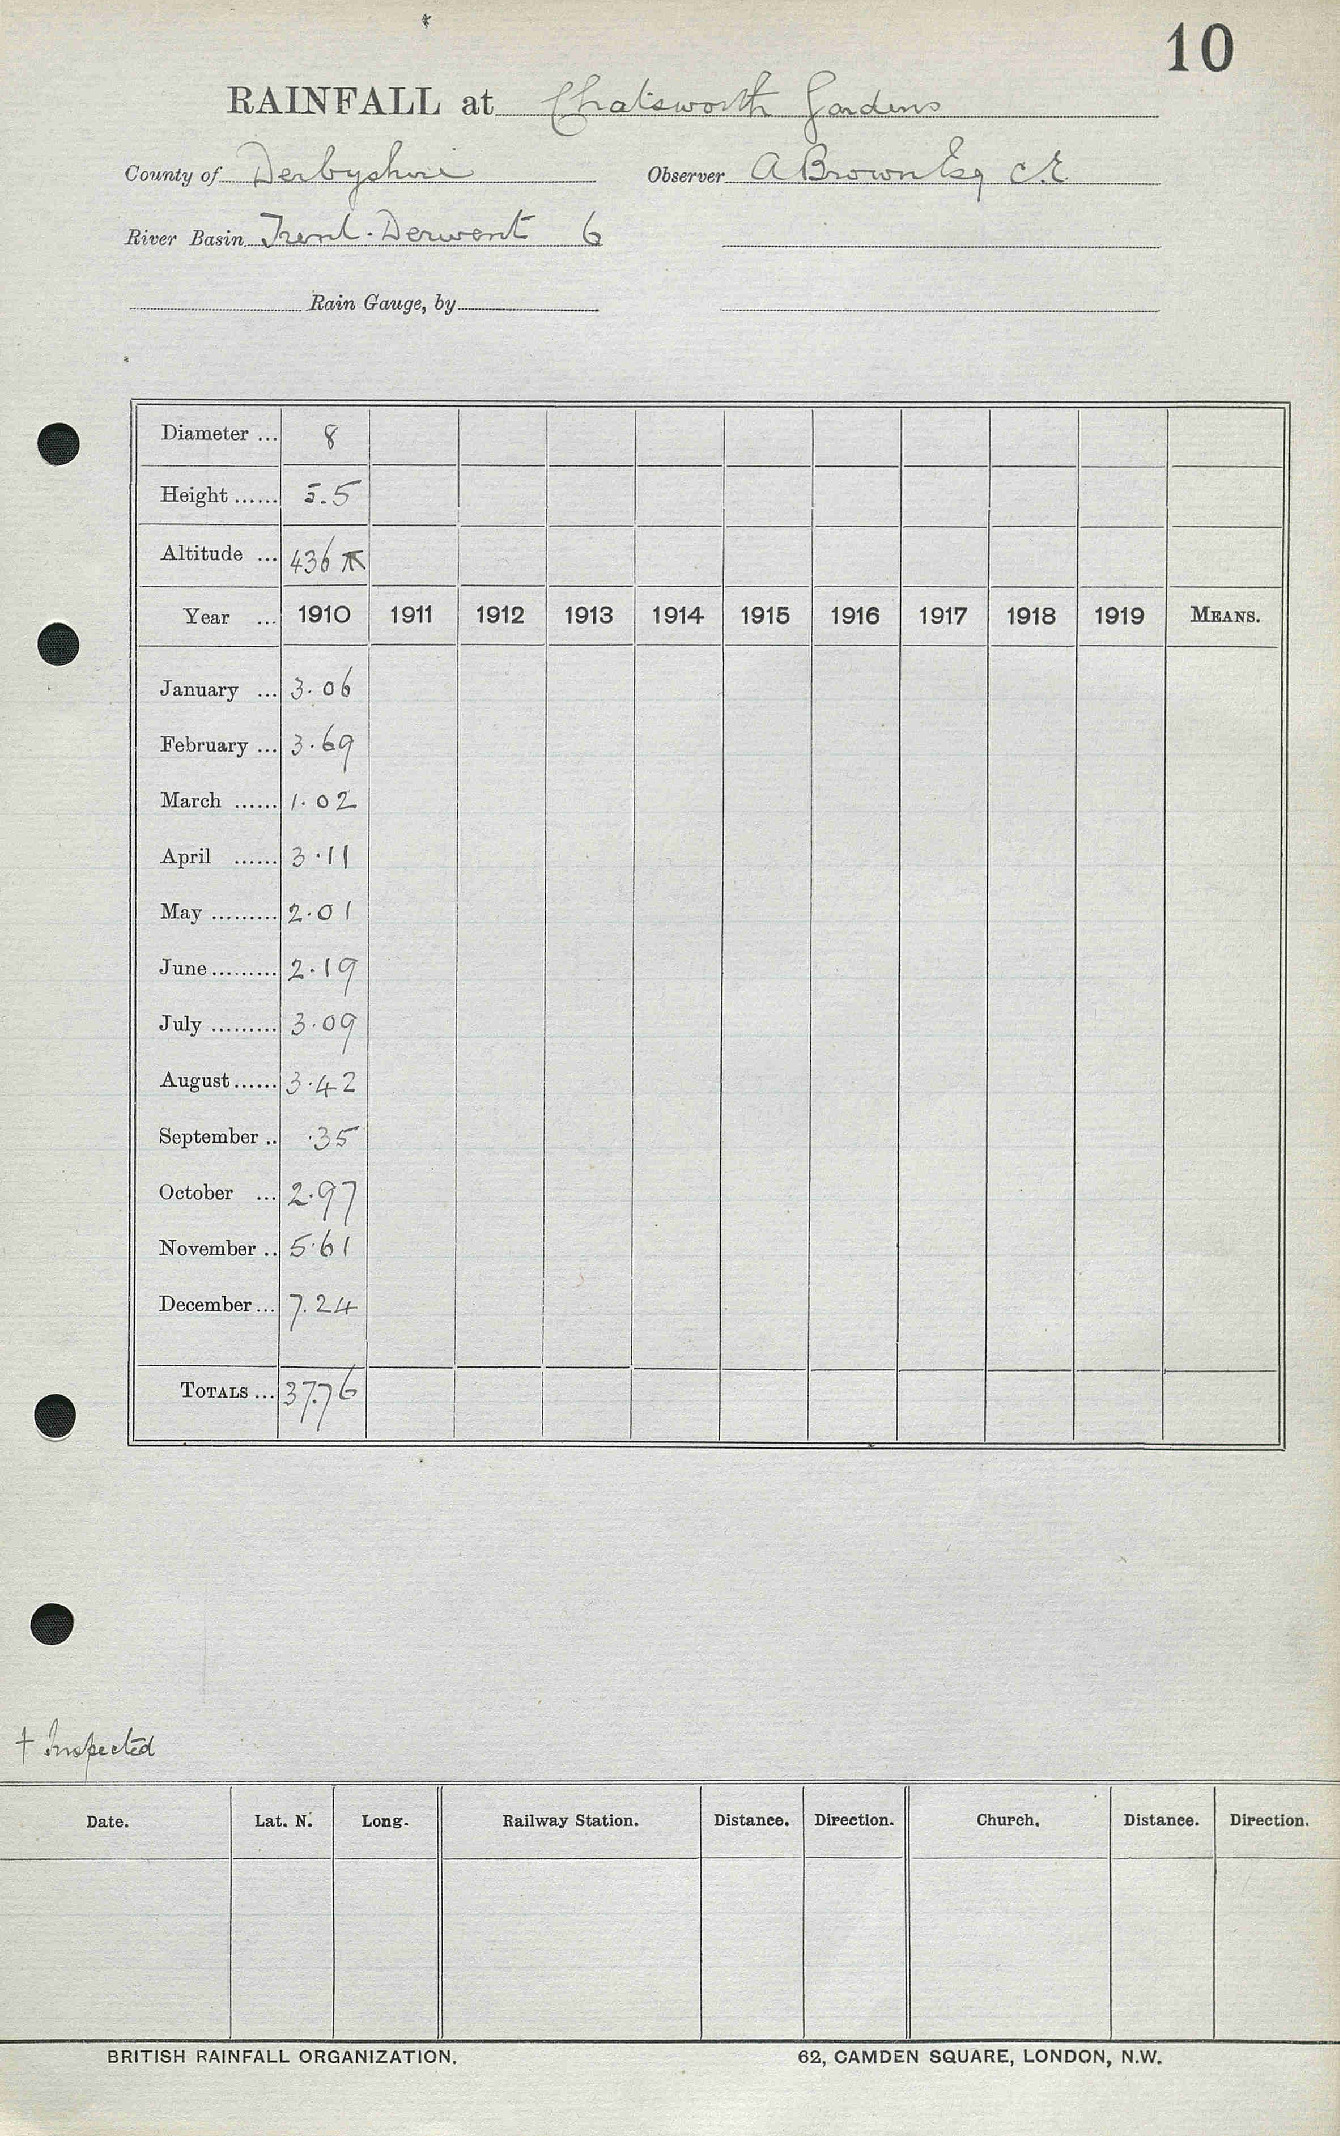 10
RAINFALL at Chatsworth Gardens
County of Derbyshire Observer A Brown Esq C.E.
River Basin Trent-Derwent 6
Rain Gauge, by
Diameter ... 8
Height ...... 5.5
Altitude ... 436
Year ... 1910 1911 1912 1913 1914 1915 1916 1917 1918 1919 MEANS.
January ... 3.06
February ... 3.69
March ...... 1.02
April ...... 3.11
May ......... 2.01
June ......... 2.19
July ......... 3.09
August ...... 3.42
September .. .35
October ... 2.97
November .. 5.61
December ... 7.24
TOTALS ... 37.76
† Inspected
Date. Lat. N. Long. Railway Station. Distance. Direction. Church. Distance. Direction.
BRITISH RAINFALL ORGANIZATION. 62, CAMDEN SQUARE, LONDON, N.W.